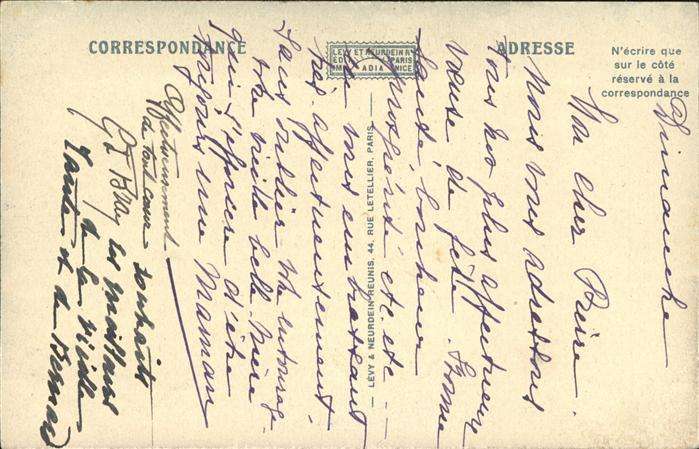 CORRESPONDANCE
LEVY ET NEURDEIN R
PARIS
ADIA NICE
ADRESSE
N'écrire que
sur le côté
réservé à la
correspondance
LÉVY & NEURDEIN RÉUNIS, 44, RUE LETELLIER, PARIS
Dimanche
Mon cher Pierre.
Nous vous adressons
tous nos plus affectueux
vœux de fête. Bonne
santé, bonheur
prospérité etc. etc - -
En vous embrassant
très affectueusement.
Sans oublier votre entourage
votre vieille belle-Mère
qui s'efforce d'être
toujours une Maman
Affectueusement
de tout cœur
souhaits
les meilleurs
de la vieille
tante et de Bernard